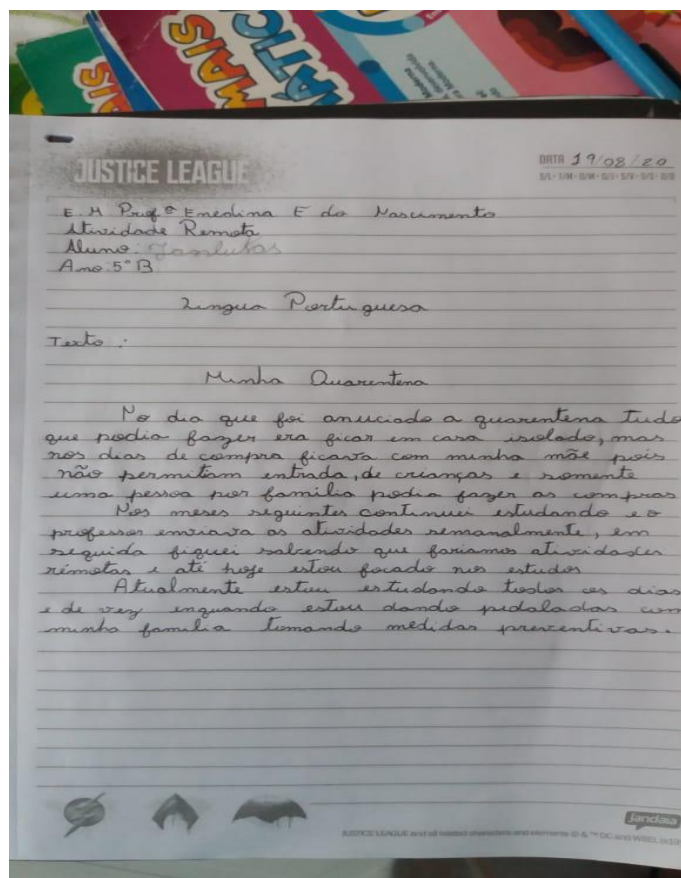 MAIS
MAIS
ÁTIC
Moderna
JUSTICE LEAGUE
DATA 19/08/20
E. M Profª Enedina E do Nascimento
Atividade Remota
Aluno:
Ano: 5° B
Língua Portuguesa
Texto:
Minha Quarentena
No dia que foi anuciado a quarentena tudo
que podia fazer era ficar em casa isolado, mas
nos dias de compra ficava com minha mãe pois
não permitiam entrada, de crianças e somente
uma pessoa por família podia fazer as compras
Nos meses seguintes continuei estudando e o
professor enviava as atividades semanalmente, em
seguida fiquei sabendo que fariamos atividades
rémotas e até hoje estou focado nos estudos
Atualmente estou estudando todos os dias
e de vez enquando estou dando pedaladas com
minha familia tomando medidas preventivas.
jandaia
JUSTICE LEAGUE and all related characters and elements © & ™ DC and WBEI.